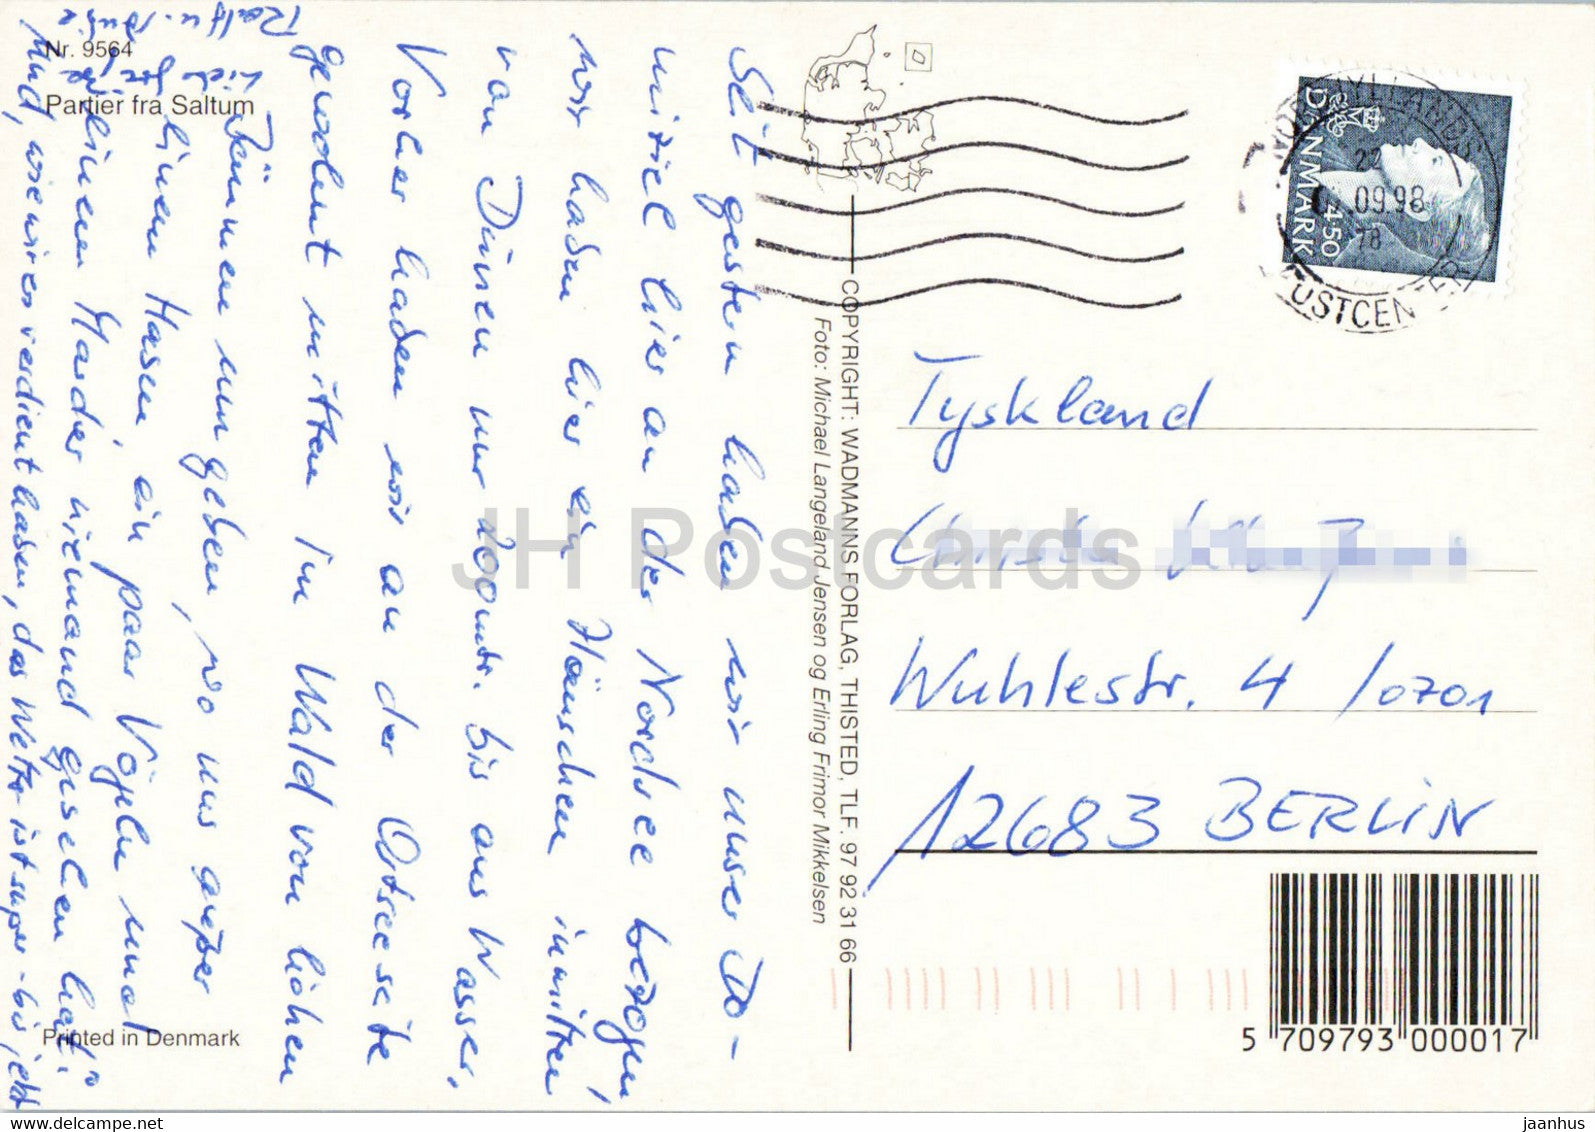 Nr. 9564
Partier fra Saltum
Seit gestern haben wir unser Do-
mizil hier an der Nordsee bezogen,
wir haben hier ein Häuschen inmitten
von Dünen nur 200 mtr. bis ans Wasser.
Vorher haben wir an der Ostseeseite
gewohnt mitten im Wald von hohen
Bäumen umgeben, wo uns außer
einen Hasen, ein paar Vögeln und
einen Marder niemand gesehen hat.
Und, wie wir es verdient haben, das Wetter ist super - bis jetzt
Ralf u.
COPYRIGHT: WADMANNS FORLAG, THISTED, TLF. 97 92 31 66
Foto: Michael Langeland Jensen og Erling Frimor Mikkelsen
Printed in Denmark
DANMARK
4.50
22
09.98
78
POSTCENTER
Tyskland
Wuhlestr. 4 /0701
12683 BERLIN
5 709793 000017
JH Postcards
www.delcampe.net
jaanhus